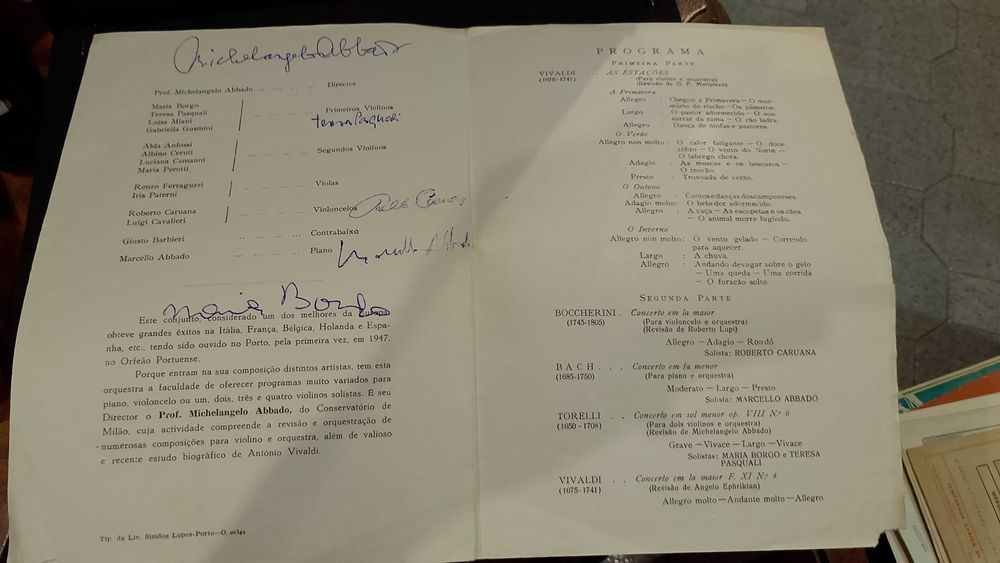 Michelangelo Abbado
Prof. Michelangelo Abbado ... ... ... Director
Maria Borgo
Teresa Pasquali
Luisa Miani
Gabriella Gusmini
... ... ... Primeiros Violinos
Teresa Pasquali
Alda Anfossi
Albino Ceruti
Luciana Camanni
Maria Perotti
... ... ... Segundos Violinos
Renzo Ferraguzzi
Iris Paterni
... ... ... Violas
Roberto Caruana
Luigi Cavalieri
... ... ... Violoncelos
Giusto Barbieri ... ... ... Contrabaixo
Marcello Abbado ... ... ... Piano
Marcello Abbado
Maria Borgo
Este conjunto, considerado um dos melhores da Europa
obreve grandes êxitos na Itália, França, Bélgica, Holanda e Espa-
nha, etc., tendo sido ouvido no Porto, pela primeira vez, em 1947,
no Orfeão Portuense.
Porque entram na sua composição distintos artistas, tem esta
orquestra a faculdade de oferecer programas muito variados para
piano, violoncelo ou um, dois, três e quatro violinos solistas. É seu
Director o Prof. Michelangelo Abbado, do Conservatório de
Milão, cuja actividade compreende a revisão e orquestração de
numerosas composições para violino e orquestra, além de valioso
e recente estudo biográfico de António Vivaldi.
Tip. da Liv. Simões Lopes-Porto—O.
PROGRAMA
PRIMEIRA PARTE
VIVALDI . . AS ESTAÇÕES
(1675-1741)
(Para violino e orquestra)
(Revisão de G. F. Malipiero)
A Primavera
Allegro : Chegou a Primavera — O mur-
múrio do riacho — Os pássaros.
Largo : O pastor adormecido — O sus-
surrar da rama — O cão ladra.
Allegro : Dança de ninfas e pastores.
O Verão
Allegro non molto : O calor fatigante — O doce
zéfiro — O vento do Norte —
O labrego chora.
Adagio : As moscas e os besouros —
O trovão.
Presto : Trovoada de verão.
O Outono
Allegro : Cantos e danças dos camponeses.
Adagio molto : O bebedor adormecido.
Allegro : A caça — As escopetas e os cães
— O animal morre fugindo.
O Inverno
Allegro non molto : O vento gelado — Correndo
para aquecer.
Largo : A chuva.
Allegro : Andando devagar sobre o gelo
— Uma queda — Uma corrida
— O furacão solto.
SEGUNDA PARTE
BOCCHERINI . Concerto em la maior
(1745-1805) (Para violoncelo e orquestra)
(Revisão de Roberto Lupi)
Allegro — Adagio — Rondó
Solista: ROBERTO CARUANA
BACH . . . Concerto em fa menor
(1685-1750) (Para piano e orquestra)
Moderato — Largo — Presto
Solista: MARCELLO ABBADO
TORELLI . . Concerto em sol menor op. VIII N.º 6
(1650-1708) (Para dois violinos e orquestra)
(Revisão de Michelangelo Abbado)
Grave — Vivace — Largo — Vivace
Solistas: MARIA BORGO e TERESA
PASQUALI
VIVALDI . . Concerto em la maior F. XI N.º 4
(1675-1741) (Revisão de Angelo Ephrikian)
Allegro molto — Andante molto — Allegro